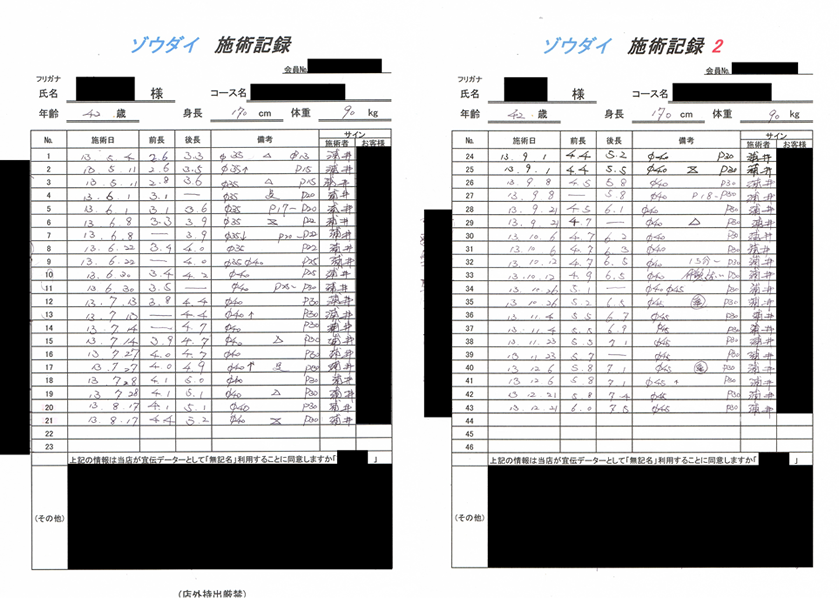 ゾウダイ 施術記録
会員No.
フリガナ
氏名 様 コース名
年齢 42 歳 身長 170 cm 体重 90 kg
No. 施術日 前長 後長 備考 サイン
施術者 お客様
1 13.5.4 2.6 3.3 φ35 △ φ13 蒲井
2 13.5.11 2.6 3.5 φ35↑ P15 蒲井
3 13.5.11 2.8 3.6 φ35 △ P15 蒲井
4 13.6.1 3.1 — φ35 P20 蒲井
5 13.6.1 3.1 3.6 φ35 P17~P20 蒲井
6 13.6.8 3.3 3.9 φ35 P22 蒲井
7 13.6.8 — 3.9 φ35↓ P20~P22 蒲井
8 13.6.22 3.4 4.0 φ35 P22 蒲井
9 13.6.22 — 4.0 φ35 φ40 P25 蒲井
10 13.6.30 3.4 4.2 φ40 P25 蒲井
11 13.6.30 3.5 — φ40 P25~P30 蒲井
12 13.7.13 3.8 4.4 φ40 P30 蒲井
13 13.7.13 — 4.4 φ40↑ P30 蒲井
14 13.7.14 — 4.7 φ40 P30 蒲井
15 13.7.14 3.9 4.7 φ40 △ P30 蒲井
16 13.7.27 4.0 4.7 φ40 P30 蒲井
17 13.7.27 4.0 4.9 φ40↑ P30 蒲井
18 13.7.28 4.1 5.0 φ40 P30 蒲井
19 13.7.28 4.1 5.1 φ40 △ P30 蒲井
20 13.8.17 4.1 5.1 φ40 P30 蒲井
21 13.8.17 4.4 5.2 φ40 P30 蒲井
22
23
上記の情報は当店が宜伝データーとして「無記名」利用することに同意しますか「 」
(その他)
(店外持出厳禁)
ゾウダイ 施術記録 2
会員No.
フリガナ
氏名 様 コース名
年齢 42 歳 身長 170 cm 体重 90 kg
No. 施術日 前長 後長 備考 サイン
施術者 お客様
24 13.9.1 4.4 5.2 φ40 P30 蒲井
25 13.9.1 4.4 5.5 φ40 P30 蒲井
26 13.9.8 4.5 5.8 φ40 P30 蒲井
27 13.9.8 — 5.8 φ40 P18~P30 蒲井
28 13.9.21 4.5 6.1 φ40 P30 蒲井
29 13.9.21 4.7 — φ40 △ P30 蒲井
30 13.10.6 4.7 6.2 φ40 P30 蒲井
31 13.10.6 4.7 6.3 φ40 P30 蒲井
32 13.10.12 4.7 6.5 φ40 13分~P30 蒲井
33 13.10.12 4.9 6.5 φ40 P30 蒲井
34 13.10.26 5.1 — φ40 φ45 P30 蒲井
35 13.10.26 5.2 6.5 φ45 P30 蒲井
36 13.11.4 5.5 6.7 φ45 P30 蒲井
37 13.11.4 5.5 6.9 φ45 P30 蒲井
38 13.11.23 5.5 7.1 φ45 P30 蒲井
39 13.11.23 5.7 — φ45 P30 蒲井
40 13.12.6 5.8 7.1 φ45 P30 蒲井
41 13.12.6 5.8 7.1 φ45↑ P30 蒲井
42 13.12.21 5.8 7.4 φ45 P30 蒲井
43 13.12.21 6.0 7.5 φ45 P30 蒲井
44
45
46
上記の情報は当店が宜伝データーとして「無記名」利用することに同意しますか「 」
(その他)